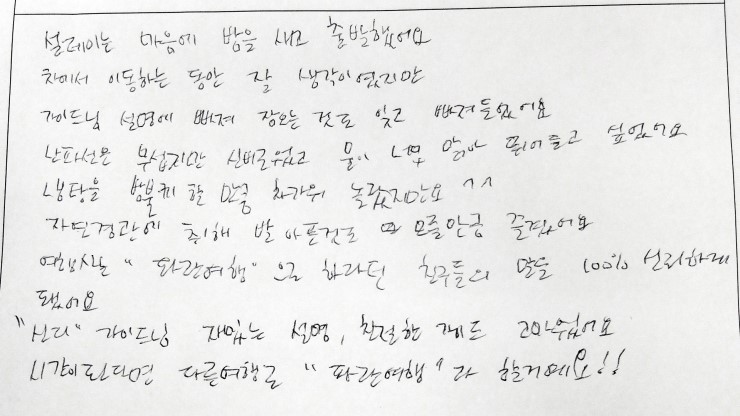 설레이는 마음에 밤을 새고 출발했어요
차에서 이동하는 동안 잘 생각이였지만
가이드님 설명에 빠져 잠오는 것도 잊고 빠져들었어요
난파선은 무섭지만 신비로웠고 물이 너무 맑아 뛰어들고 싶었어요
냉탕을 방불케 할 만큼 차가워 놀랐지만요 ^^
자연경관에 취해 발 아픈것도 모를만큼 즐겼어요
여행사는 "파란여행"으로 하라던 친구들의 말을 100% 신뢰하게
됐어요
"신디" 가이드님 재밌는 설명, 친절한 가이드 고마웠어요
시간이된다면 다른여행도 "파란여행"과 할거예요!!